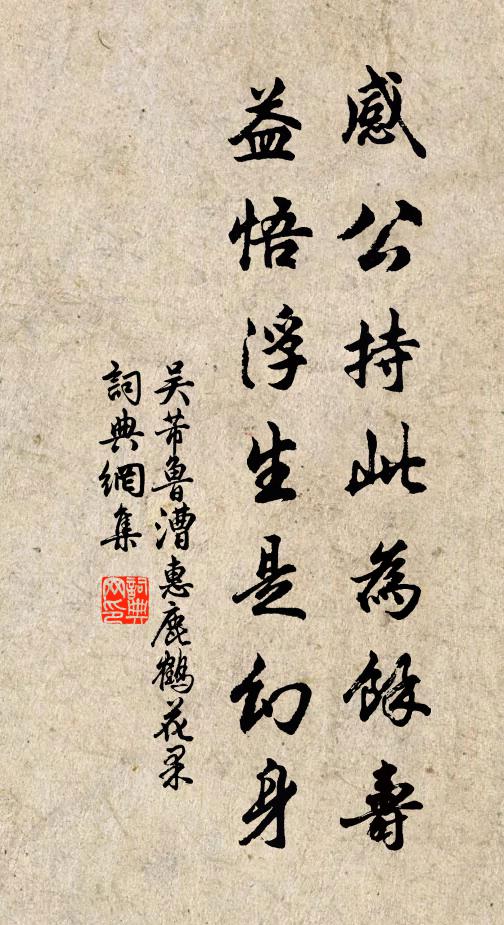 感公持此為餘壽
益悟浮生是幻身
吳芾魯漕惠鹿鶴花果
詞典網集
詞典網印